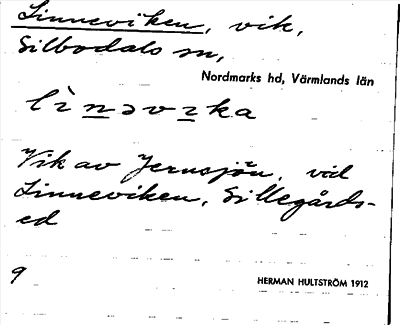 Linneviken, vik,
Silbodals sn,
Nordmarks hd, Värmlands län
lìnəvika
Vik av Jernsjön, vid
Linneviken, Sillegårds-
ed
9
HERMAN HULTSTRÖM 1912